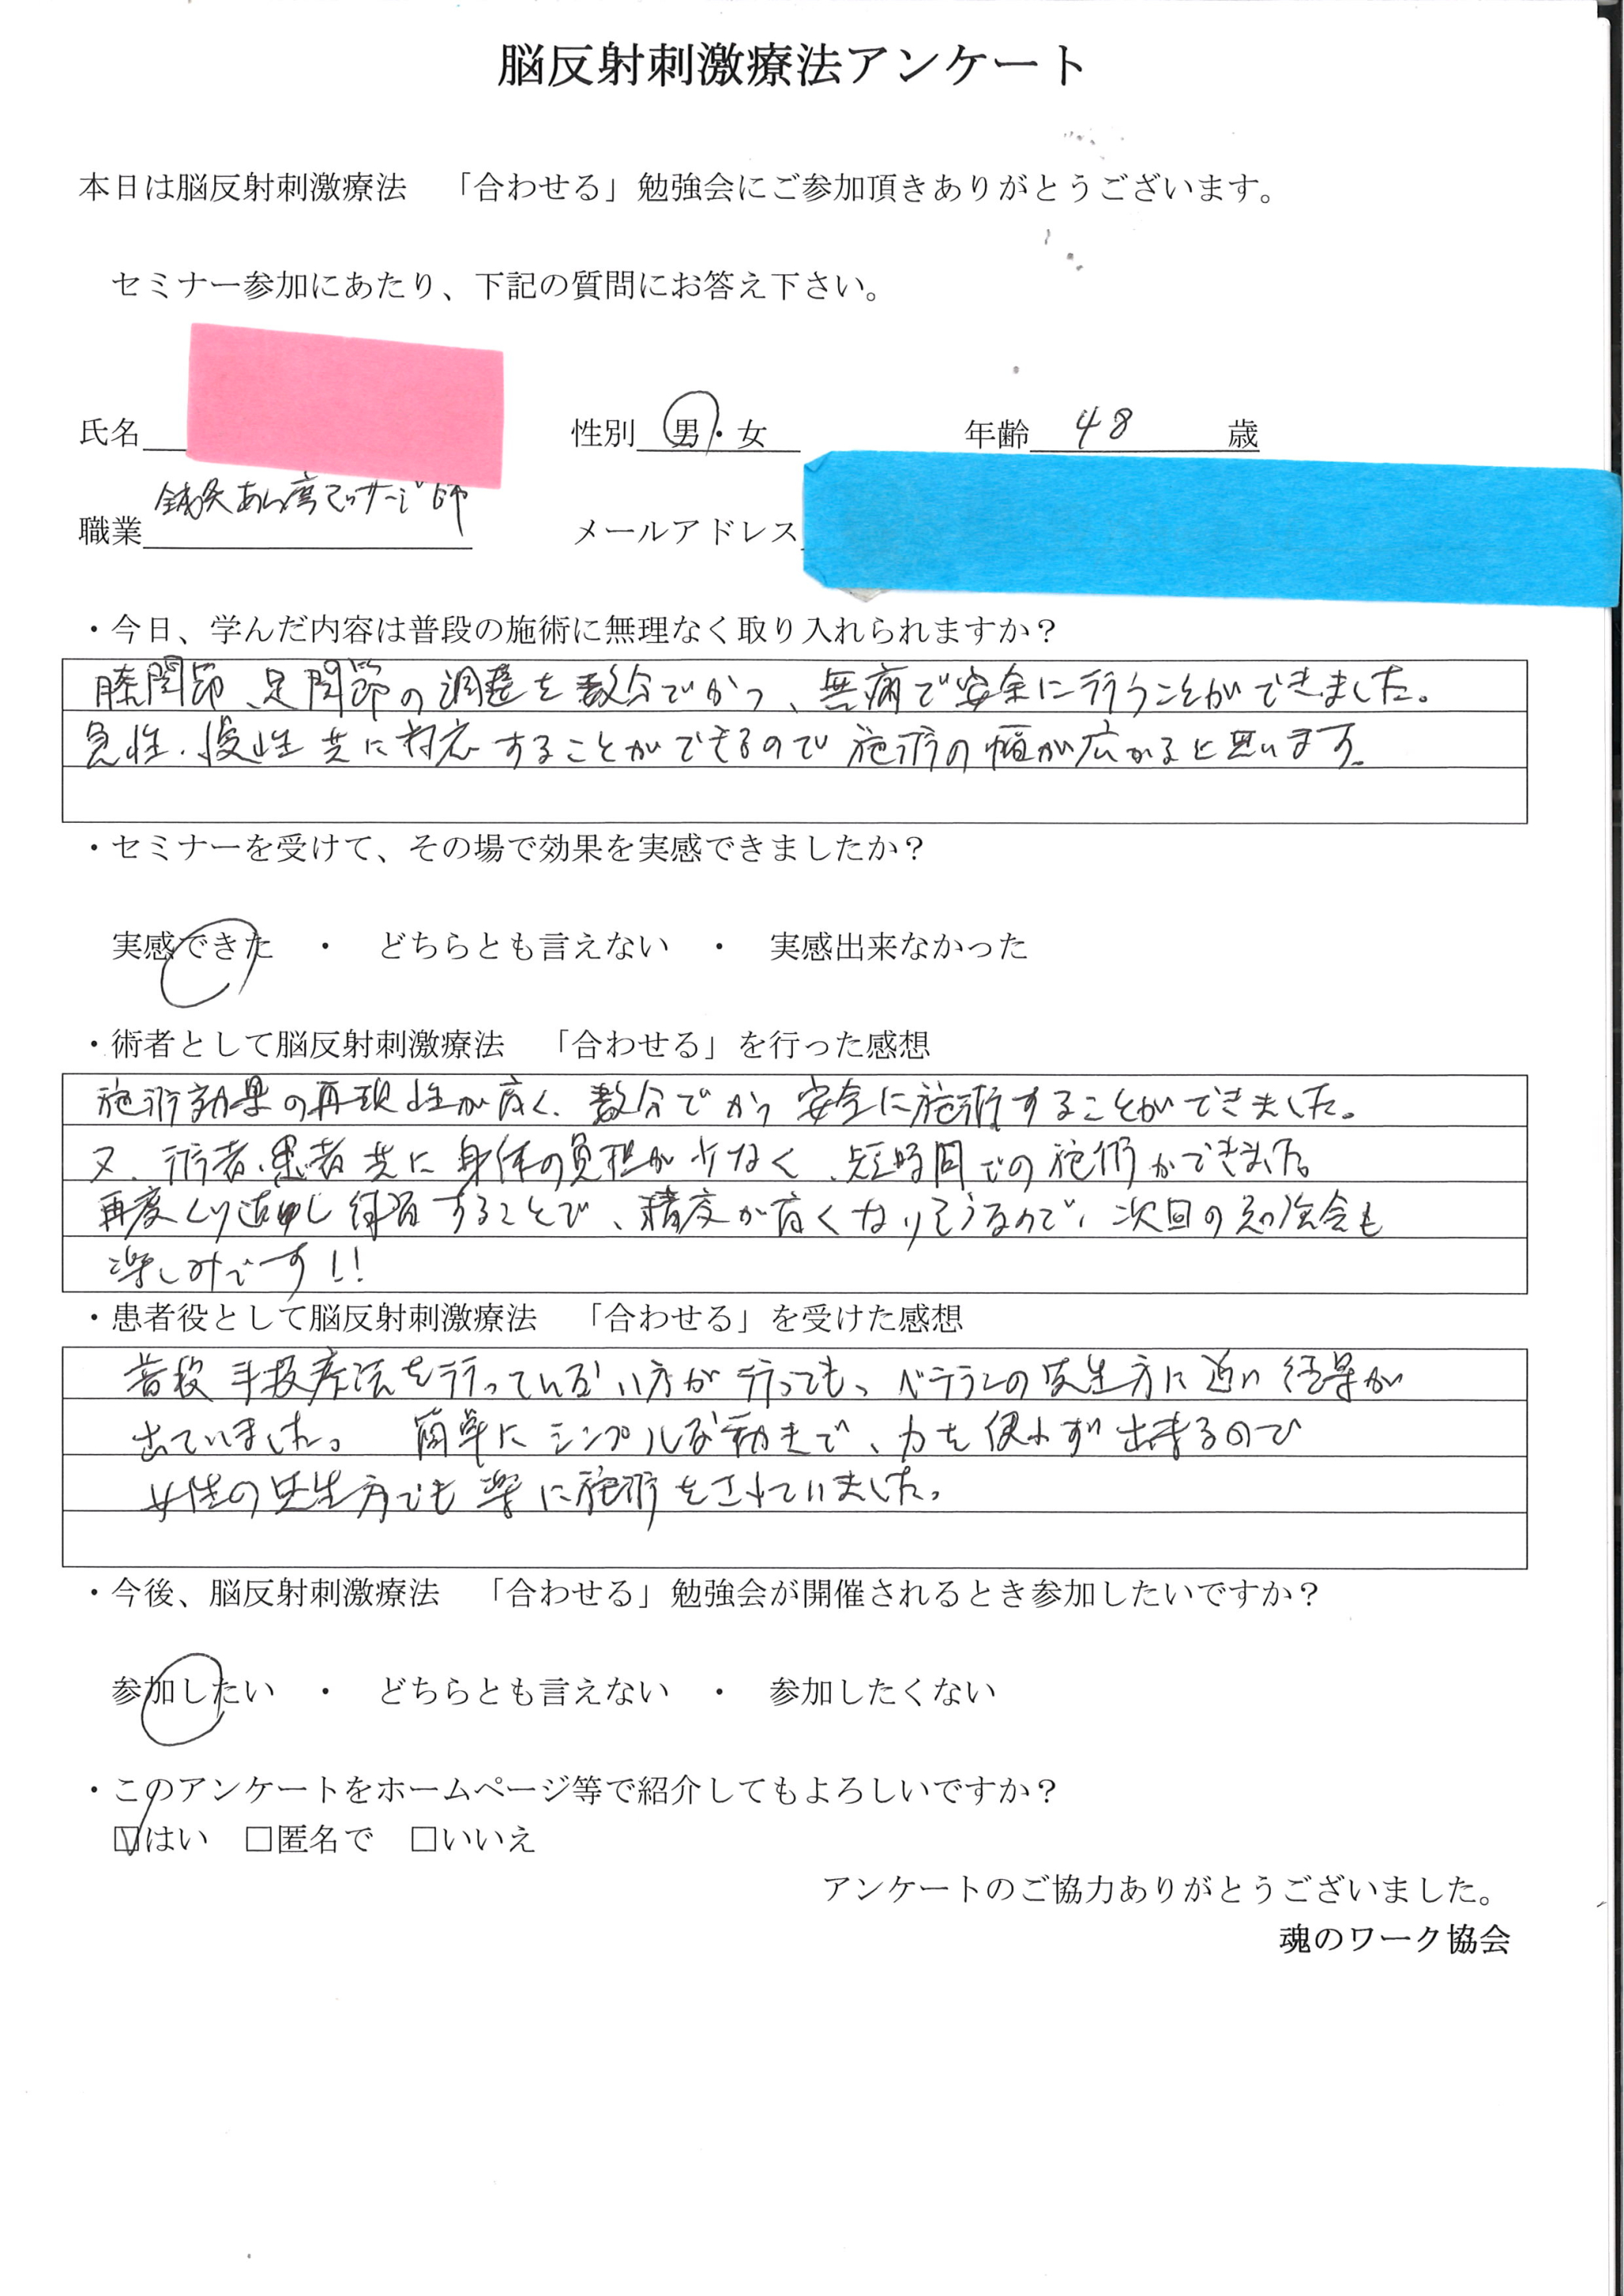 脳反射刺激療法アンケート
本日は脳反射刺激療法　「合わせる」勉強会にご参加頂きありがとうございます。
セミナー参加にあたり、下記の質問にお答え下さい。
氏名　性別　男・女　年齢　48　歳
職業　鍼灸あん摩マッサージ師　メールアドレス
・今日、学んだ内容は普段の施術に無理なく取り入れられますか？
膝関節、足関節の調整を数分でかつ、無痛で安全に行うことができました。
急性・慢性共に対応することができるので施術の幅が広がると思います。
・セミナーを受けて、その場で効果を実感できましたか？
実感できた　・　どちらとも言えない　・　実感出来なかった
・術者として脳反射刺激療法　「合わせる」を行った感想
施術効果の再現性が高く、数分でかつ安全に施術することができました。
又、術者、患者共に身体の負担が少なく、短時間での施術ができました。
再度くり返し練習することで、精度が高くなりそうなので、次回の勉強会も
楽しみです!!
・患者役として脳反射刺激療法　「合わせる」を受けた感想
普段手技療法を行っていない方が行っても、ベテランの先生方に近い結果が
出ていました。　簡単にシンプルな動きで、力を使わず出来るので
女性の先生方でも楽に施術をされていました。
・今後、脳反射刺激療法　「合わせる」勉強会が開催されるとき参加したいですか？
参加したい　・　どちらとも言えない　・　参加したくない
・このアンケートをホームページ等で紹介してもよろしいですか？
☑はい　□匿名で　□いいえ
アンケートのご協力ありがとうございました。
魂のワーク協会